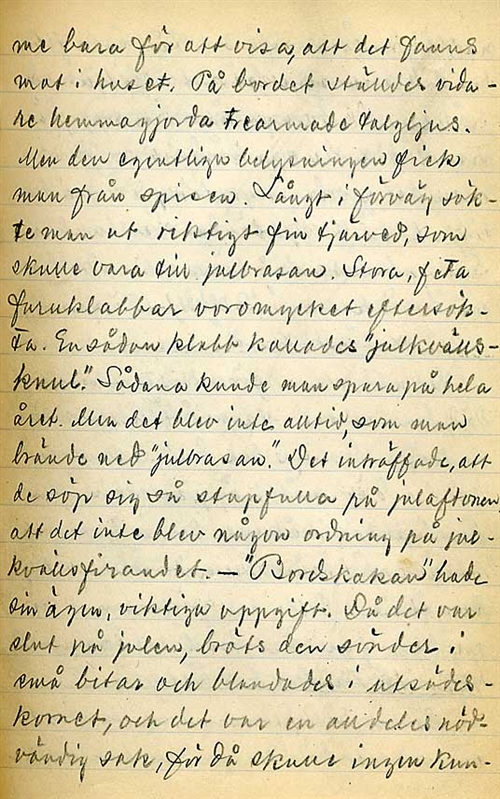 me bara för att visa, att det fanns
mat i huset. På bordet ställdes vida-
re hemmagjorda trearmade talgljus.
Men den egentliga belysningen fick
man från spisen. Långt i förväg sök-
te man ut riktigt fin tjärved, som
skulle vara till julbrasan. Stora, feta
furuklabbar voro mycket eftersök-
ta. En sådan klabb kallades "julkvälls-
knul." Sådana kunde man spara på hela
året. Men det blev inte alltid, som man
brände ned "julbrasan." Det inträffade, att
de söp sig så stupfulla på julaftonen
att det inte blev någon ordning på jul-
kvällsfirandet. — "Bordskakan" hade
sin ägen, viktiga uppgift. Då det var
slut på julen, bröts den sönder i
små bitar och blandades i utsädes-
kornet, och det var en alldeles nöd-
vändig sak, för då skulle ingen kun-